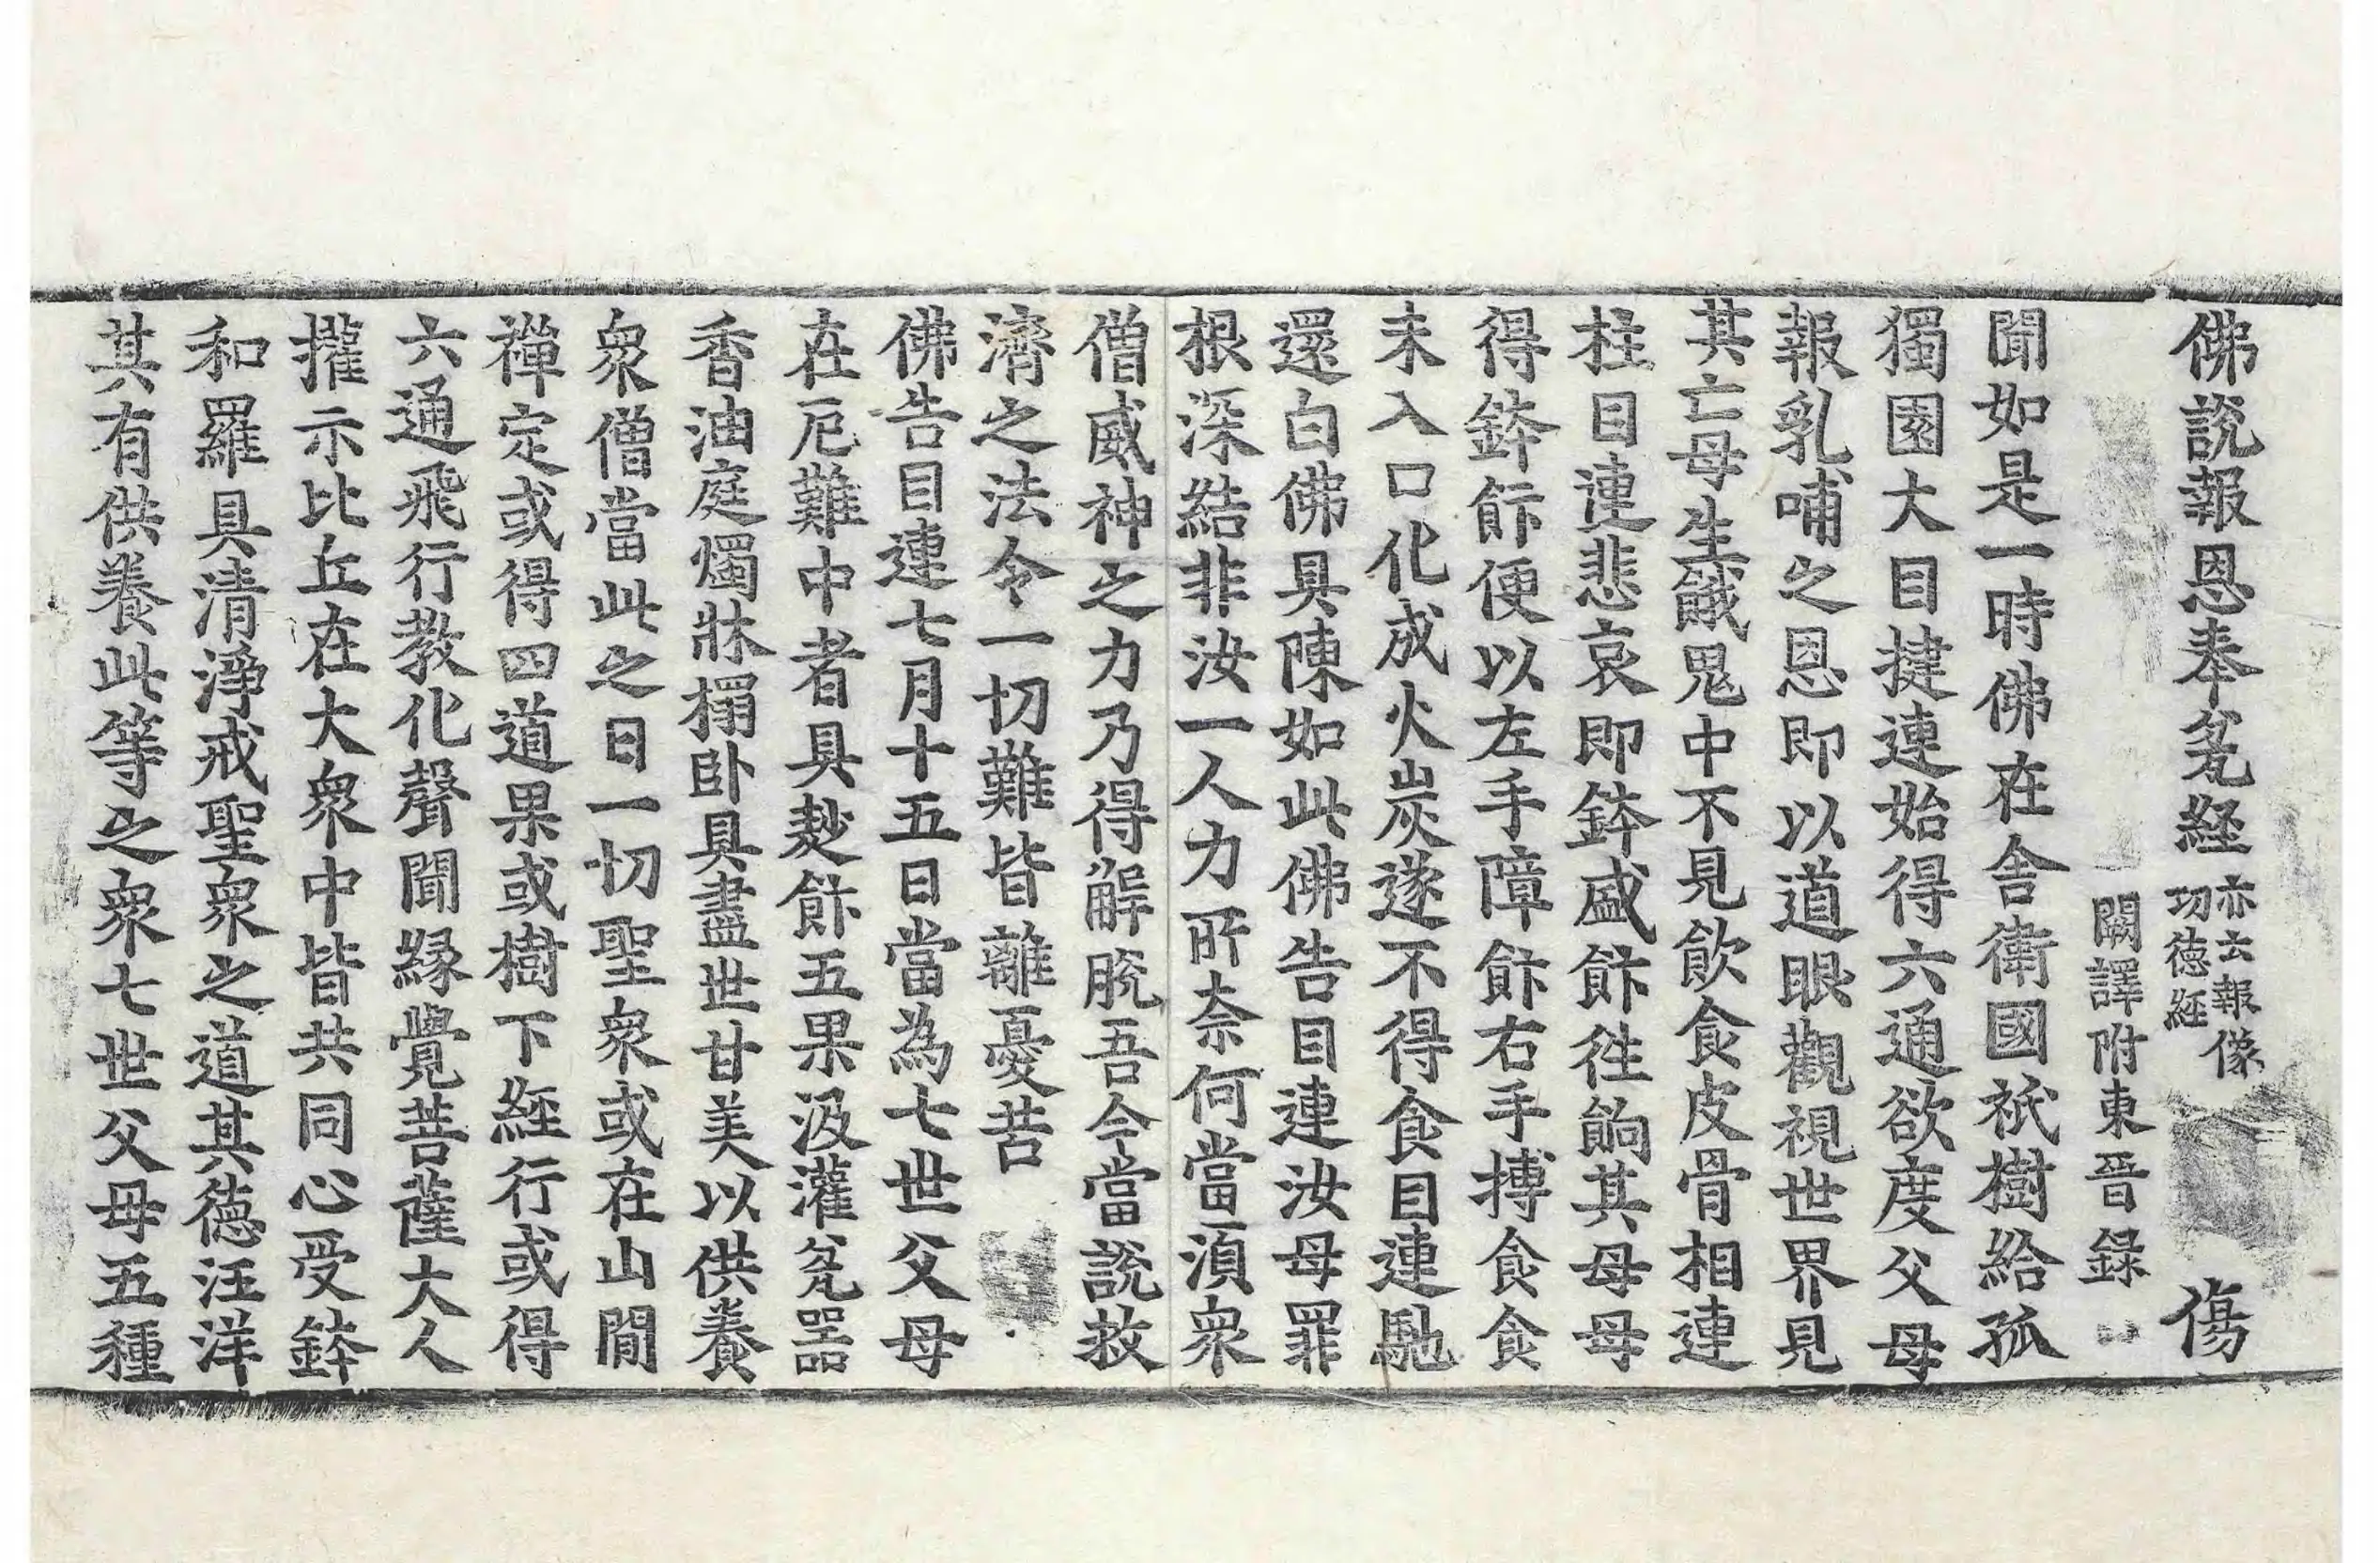 佛説報恩奉瓫経 亦云報像功德経 傷
闕譯附東晉録
聞如是一時佛在舎衛國祇樹給孤
獨園大目揵連始得六通欲度父母
報乳哺之恩即以道眼觀視世界見
其亡母生餓鬼中不見飲食皮骨相連
柱目連悲哀即鉢盛飰徃餉其母母
得鉢飰便以左手障飰右手摶食食
未入口化成火炭遂不得食目連馳
還白佛具陳如此佛告目連汝母罪
根深結非汝一人力所奈何當須衆
僧威神之力乃得解脫吾今當說救
濟之法令一切難皆離憂苦
佛告目連七月十五日當為七世父母
在厄難中者具麨飰五果汲灌瓫器
香油庭燭牀榻卧具盡世甘美以供養
衆僧當此之日一切聖衆或在山間
禪定或得四道果或樹下經行或得
六通飛行教化聲聞緣覺菩薩大人
攉示比丘在大衆中皆共同心受鉢
和羅具清淨戒聖衆之道其德汪洋
其有供養此等之衆七世父母五種